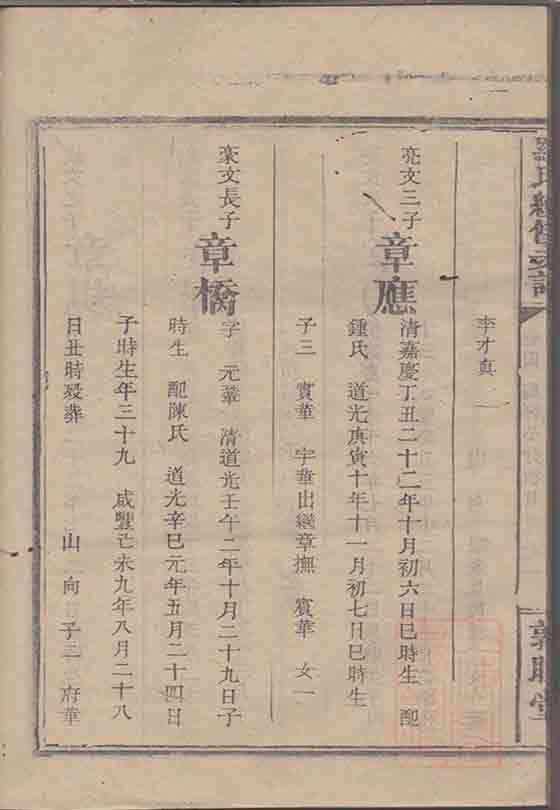 羅氏續修支譜
敦睦堂
李才真
亮文三子
章應
清嘉慶丁丑二十二年十月初六日巳時生 配
鍾氏 道光庚寅十年十一月初七日巳時生
子三 賓華 宇華出繼章撫 賓華 女一
豪文長子
章橋
字 元華 清道光壬午二年十月二十九日子
時生 配陳氏 道光辛巳元年五月二十四日
子時生年三十九 咸豐己未九年八月二十八
日丑時歿葬 山 向 子二 府華